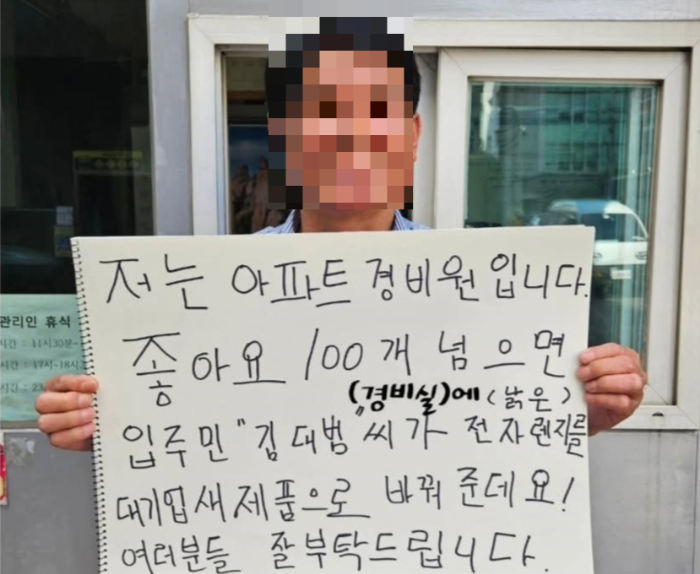 저는 아파트 경비원입니다.
좋아요 100개 넘으면
(경비실)에 (낡은)
입주민 "김대범"씨가 전자렌지를
대기업새제품으로 바꿔 준데요!
여러분들 잘부탁드립니다.
관리인 휴식
시간 : 11시30분~
시간 : 17시~18시
시간 : 23